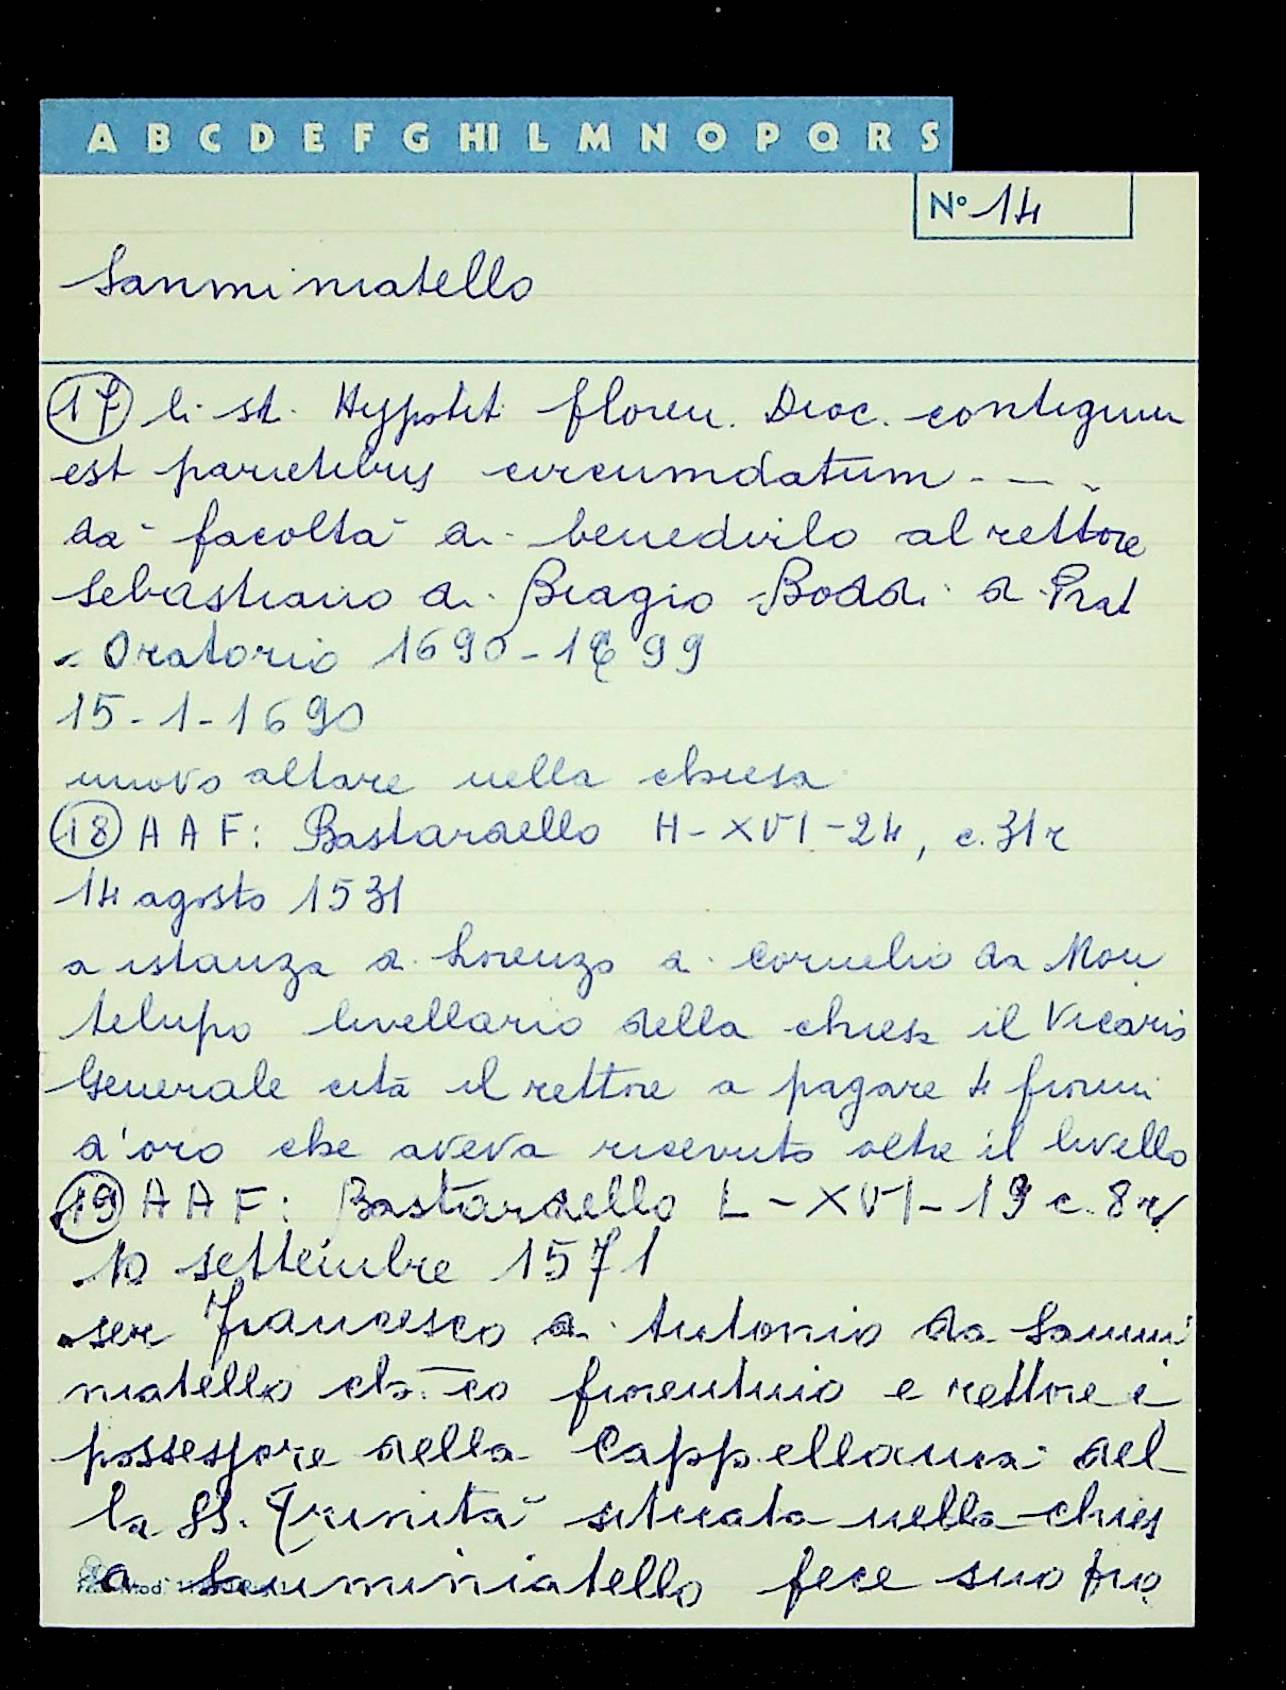 A B C D E F G HI L M N O P Q R S
N° 14
Sanminiatello
17 li st. Hyppolit. floren. Dioc. contiguum
est parietibus circumdatum - - - -
dà facoltà di benedirlo al rettore
Sebastiano di Biagio Boddi di Prat
- Oratorio 1690-1699
15-1-1690
nuovo altare nella chiesa
18 A A F: Bastardello H-XVI-24, c. 31r
14 agosto 1531
a istanza di Lorenzo di Cornelio da Mon
telupo livellario della chiesa il Vicario
Generale cita il rettore a pagare 4 fiorini
d'oro che aveva ricevuto oltre il livello
19 A A F: Bastardello L-XVI-19 c. 8r
10 settembre 1571
ser Francesco di Antonio da Sanmi
niatello ch.co fiorentino e rettore e
possessore della Cappellania del
la SS. Trinità situata nella chies
di Sanminiatello fece suo pro